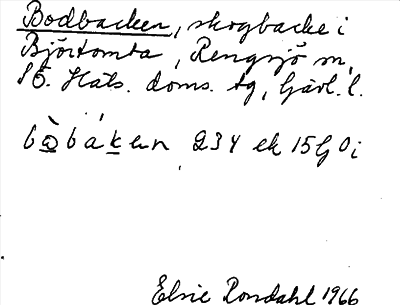 Bodbacken, skogbacke i
Björtomta, Rengsjö sn,
Sö. Häls. doms. tg, Gävl. l.
bòbáken 234 ek 15G0i
Elsie Rondahl 1966